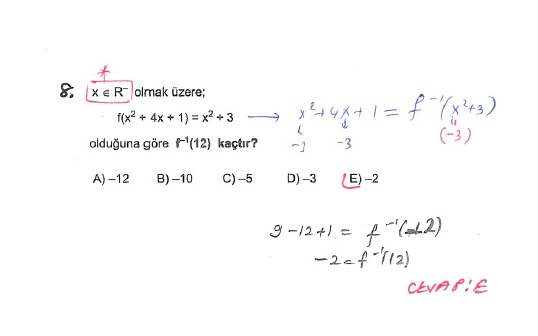 *
8. x ∈ R⁻ olmak üzere;
f(x² + 4x + 1) = x² + 3 → x² + 4x + 1 = f⁻¹(x² + 3)
-3 -3 (-3)
olduğuna göre f⁻¹(12) kaçtır?
A) –12 B) –10 C) –5 D) –3 E) –2
9 - 12 + 1 = f⁻¹(12)
-2 = f⁻¹(12)
CEVAP: E